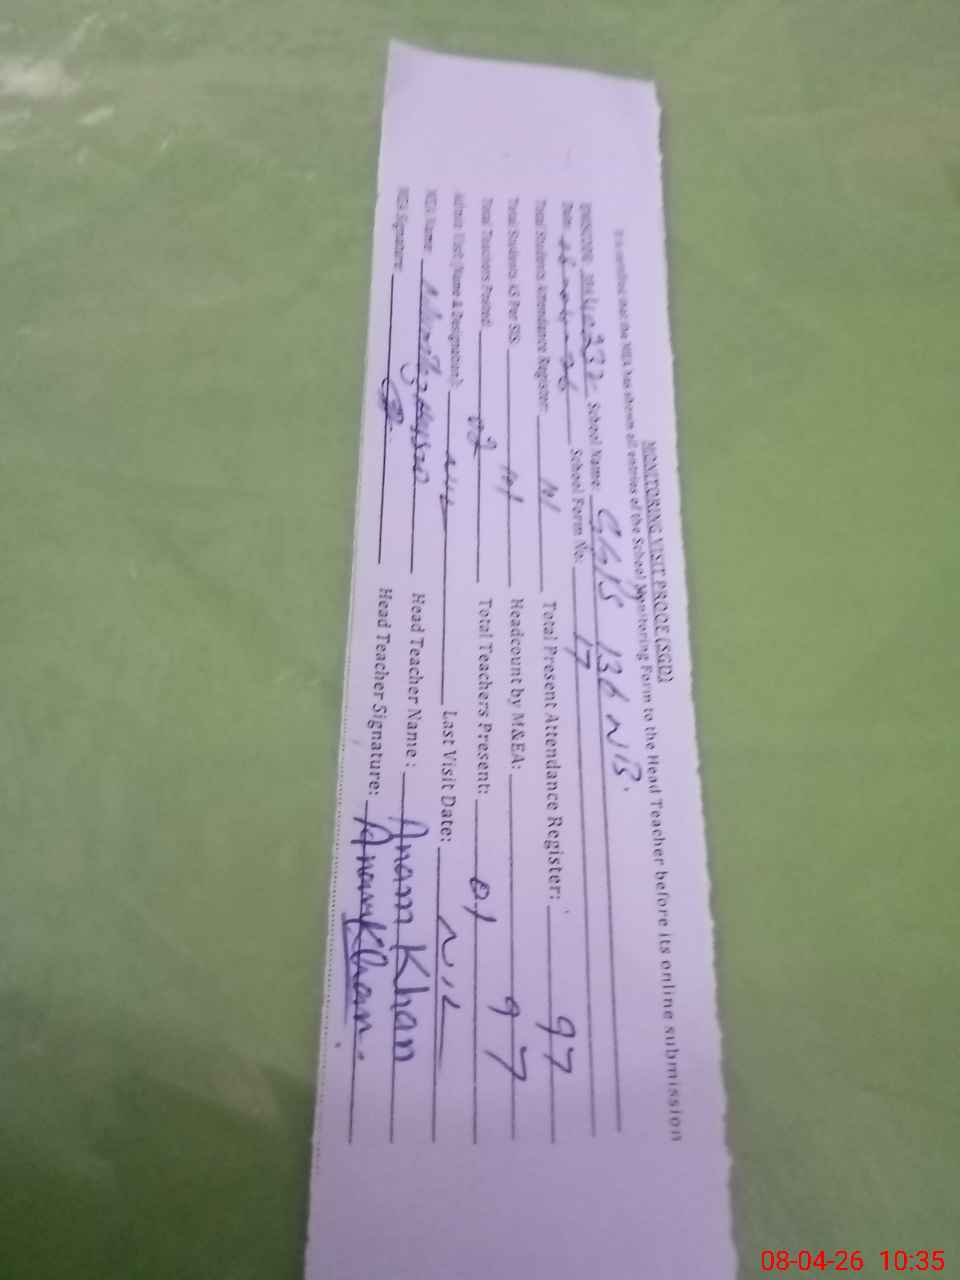 MONITORING VISIT PROOF (SGD)
It is certified that the MEA has shown all entries of the School Monitoring Form to the Head Teacher before its online submission
School Name: GGPS 136 NB.
Date: 08-04-26 School Form No: 17
Total Students Attendance Register: Total Present Attendance Register: 97
Total Students AS Per SIS: 101 Headcount by M&EA: 97
Total Teachers Posted: 02 Total Teachers Present: 01
Admin Visit (Name & Designation): NIL Last Visit Date: NIL
MEA Name: Head Teacher Name : Anam Khan
MEA Signature: Head Teacher Signature: Anam Khan.
08-04-26 10:35